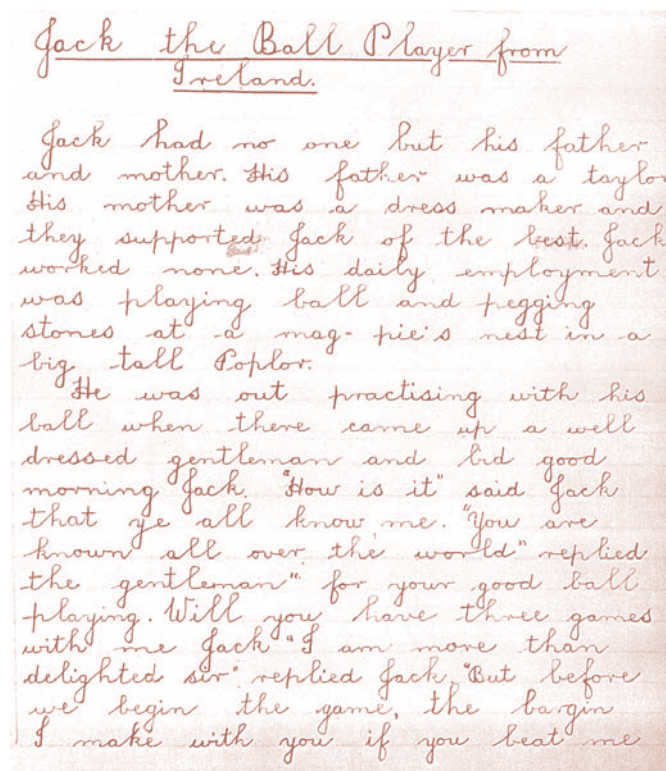 Jack the Ball Player from
Ireland.
Jack had no one but his father
and mother. His father was a taylor
His mother was a dress maker and
they supported Jack of the best. Jack
worked none. His daily employment
was playing ball and pegging
stones at a mag-pie's nest in a
big tall Poplor.
He was out practising with his
ball when there came up a well
dressed gentleman and bid good
morning Jack. "How is it" said Jack
that ye all know me. "You are
known all over the world" replied
the gentleman" for your good ball
playing. Will you have three games
with me Jack "I am more than
delighted sir" replied Jack. "But before
we begin the game, the bargin
I make with you if you beat me